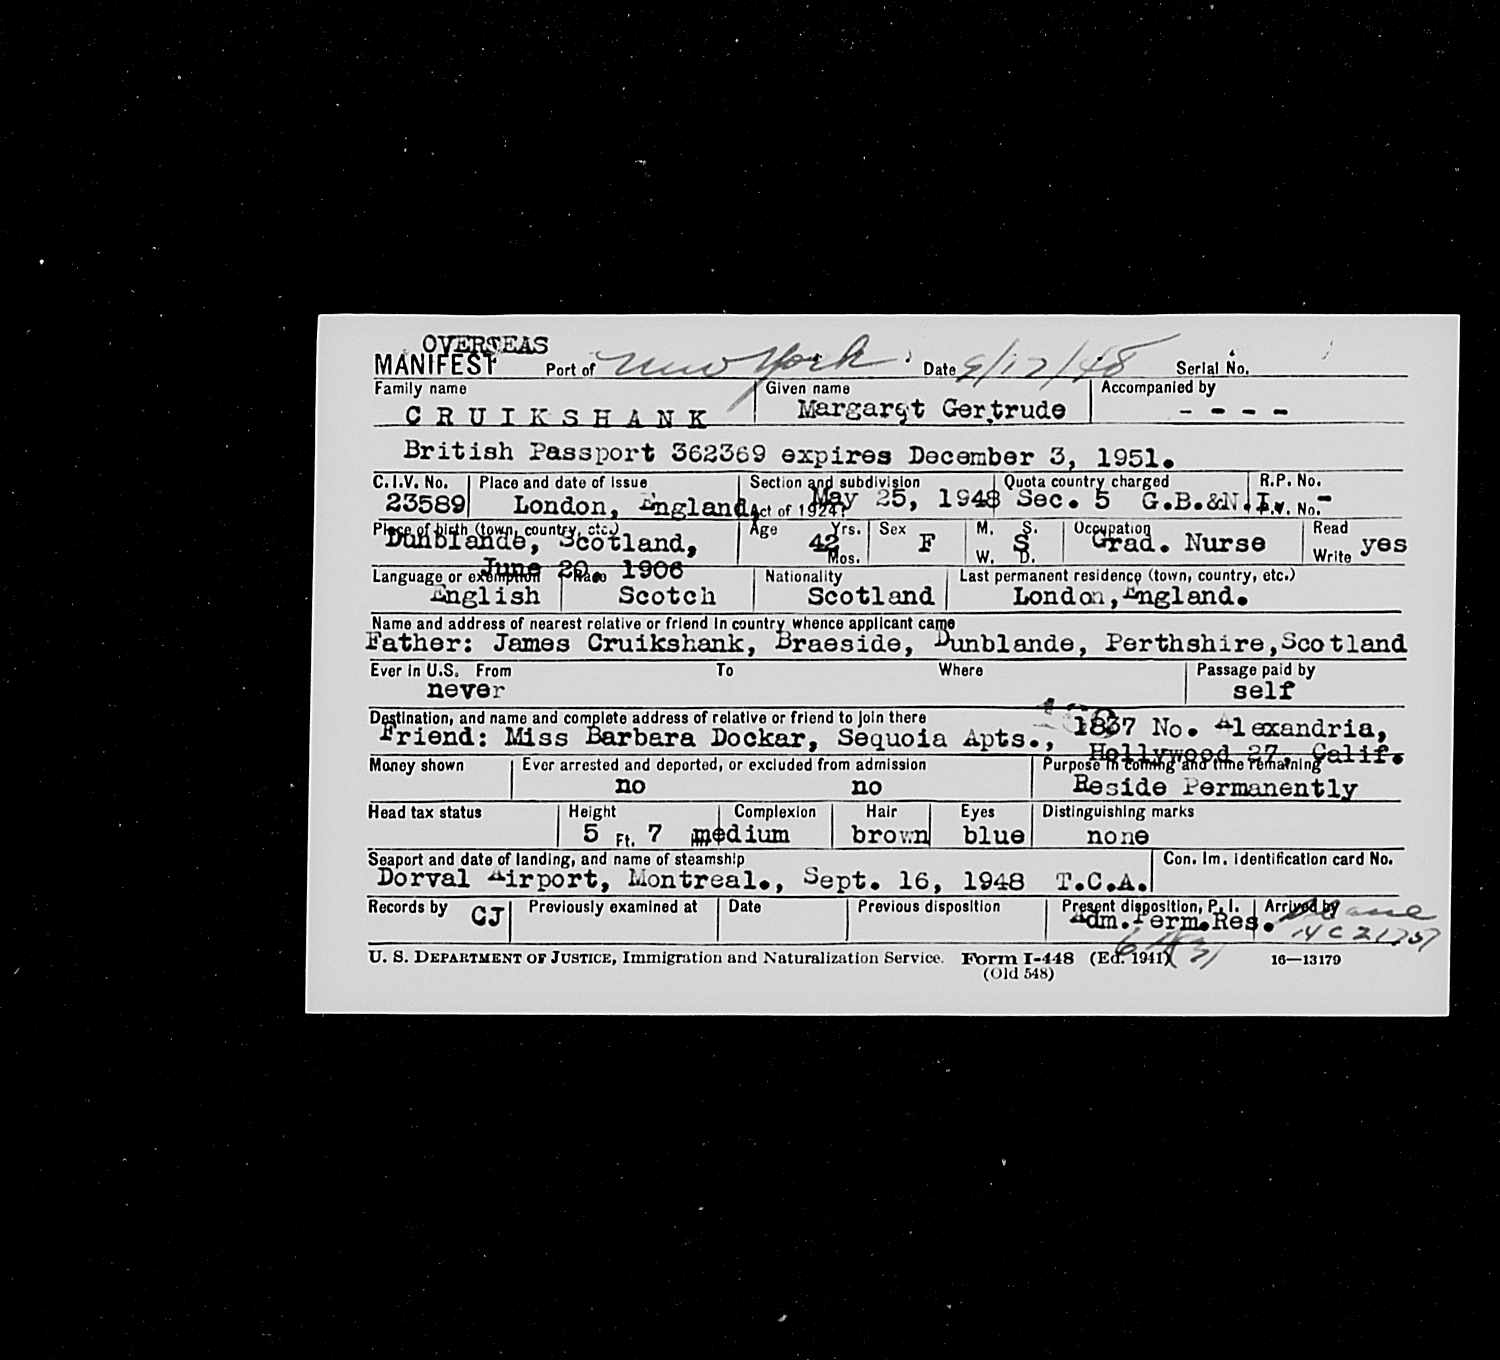 OVERSEAS
MANIFEST Port of New York Date 9/17/48 Serial No.
Family name Given name Accompanied by
CRUIKSHANK Margaret Gertrude - - - -
British Passport 362369 expires December 3, 1951.
C.I.V. No. Place and date of issue Section and subdivision Quota country charged R.P. No.
23589 London, England, May 25, 1948 Sec. 5 G.B.&N.I. -
Act of 1924: P.V. No.
Place of birth (town, country, etc.) Age Yrs. Sex M. S. Occupation Read
Dunblande, Scotland, 42 F S Grad. Nurse yes
Mos. W. D. Write
June 20, 1906
Language or exemption Race Nationality Last permanent residence (town, country, etc.)
English Scotch Scotland London, England.
Name and address of nearest relative or friend in country whence applicant came
Father: James Cruikshank, Braeside, Dunblande, Perthshire, Scotland
Ever in U.S. From To Where Passage paid by
never self
Destination, and name and complete address of relative or friend to join there
Friend: Miss Barbara Dockar, Sequoia Apts., 1837 No. Alexandria,
Hollywood 27, Calif.
Money shown Ever arrested and deported, or excluded from admission Purpose in coming and time remaining
no no Reside Permanently
Head tax status Height Complexion Hair Eyes Distinguishing marks
5 Ft. 7 medium brown blue none
Seaport and date of landing, and name of steamship Con. Im. Identification card No.
Dorval Airport, Montreal., Sept. 16, 1948 T.C.A.
Records by CJ Previously examined at Date Previous disposition Present disposition, P. I. Arrived by
Adm. Perm. Res.
U. S. DEPARTMENT OF JUSTICE, Immigration and Naturalization Service. Form I-448 (Ed. 1941) 16—13179
(Old 548)